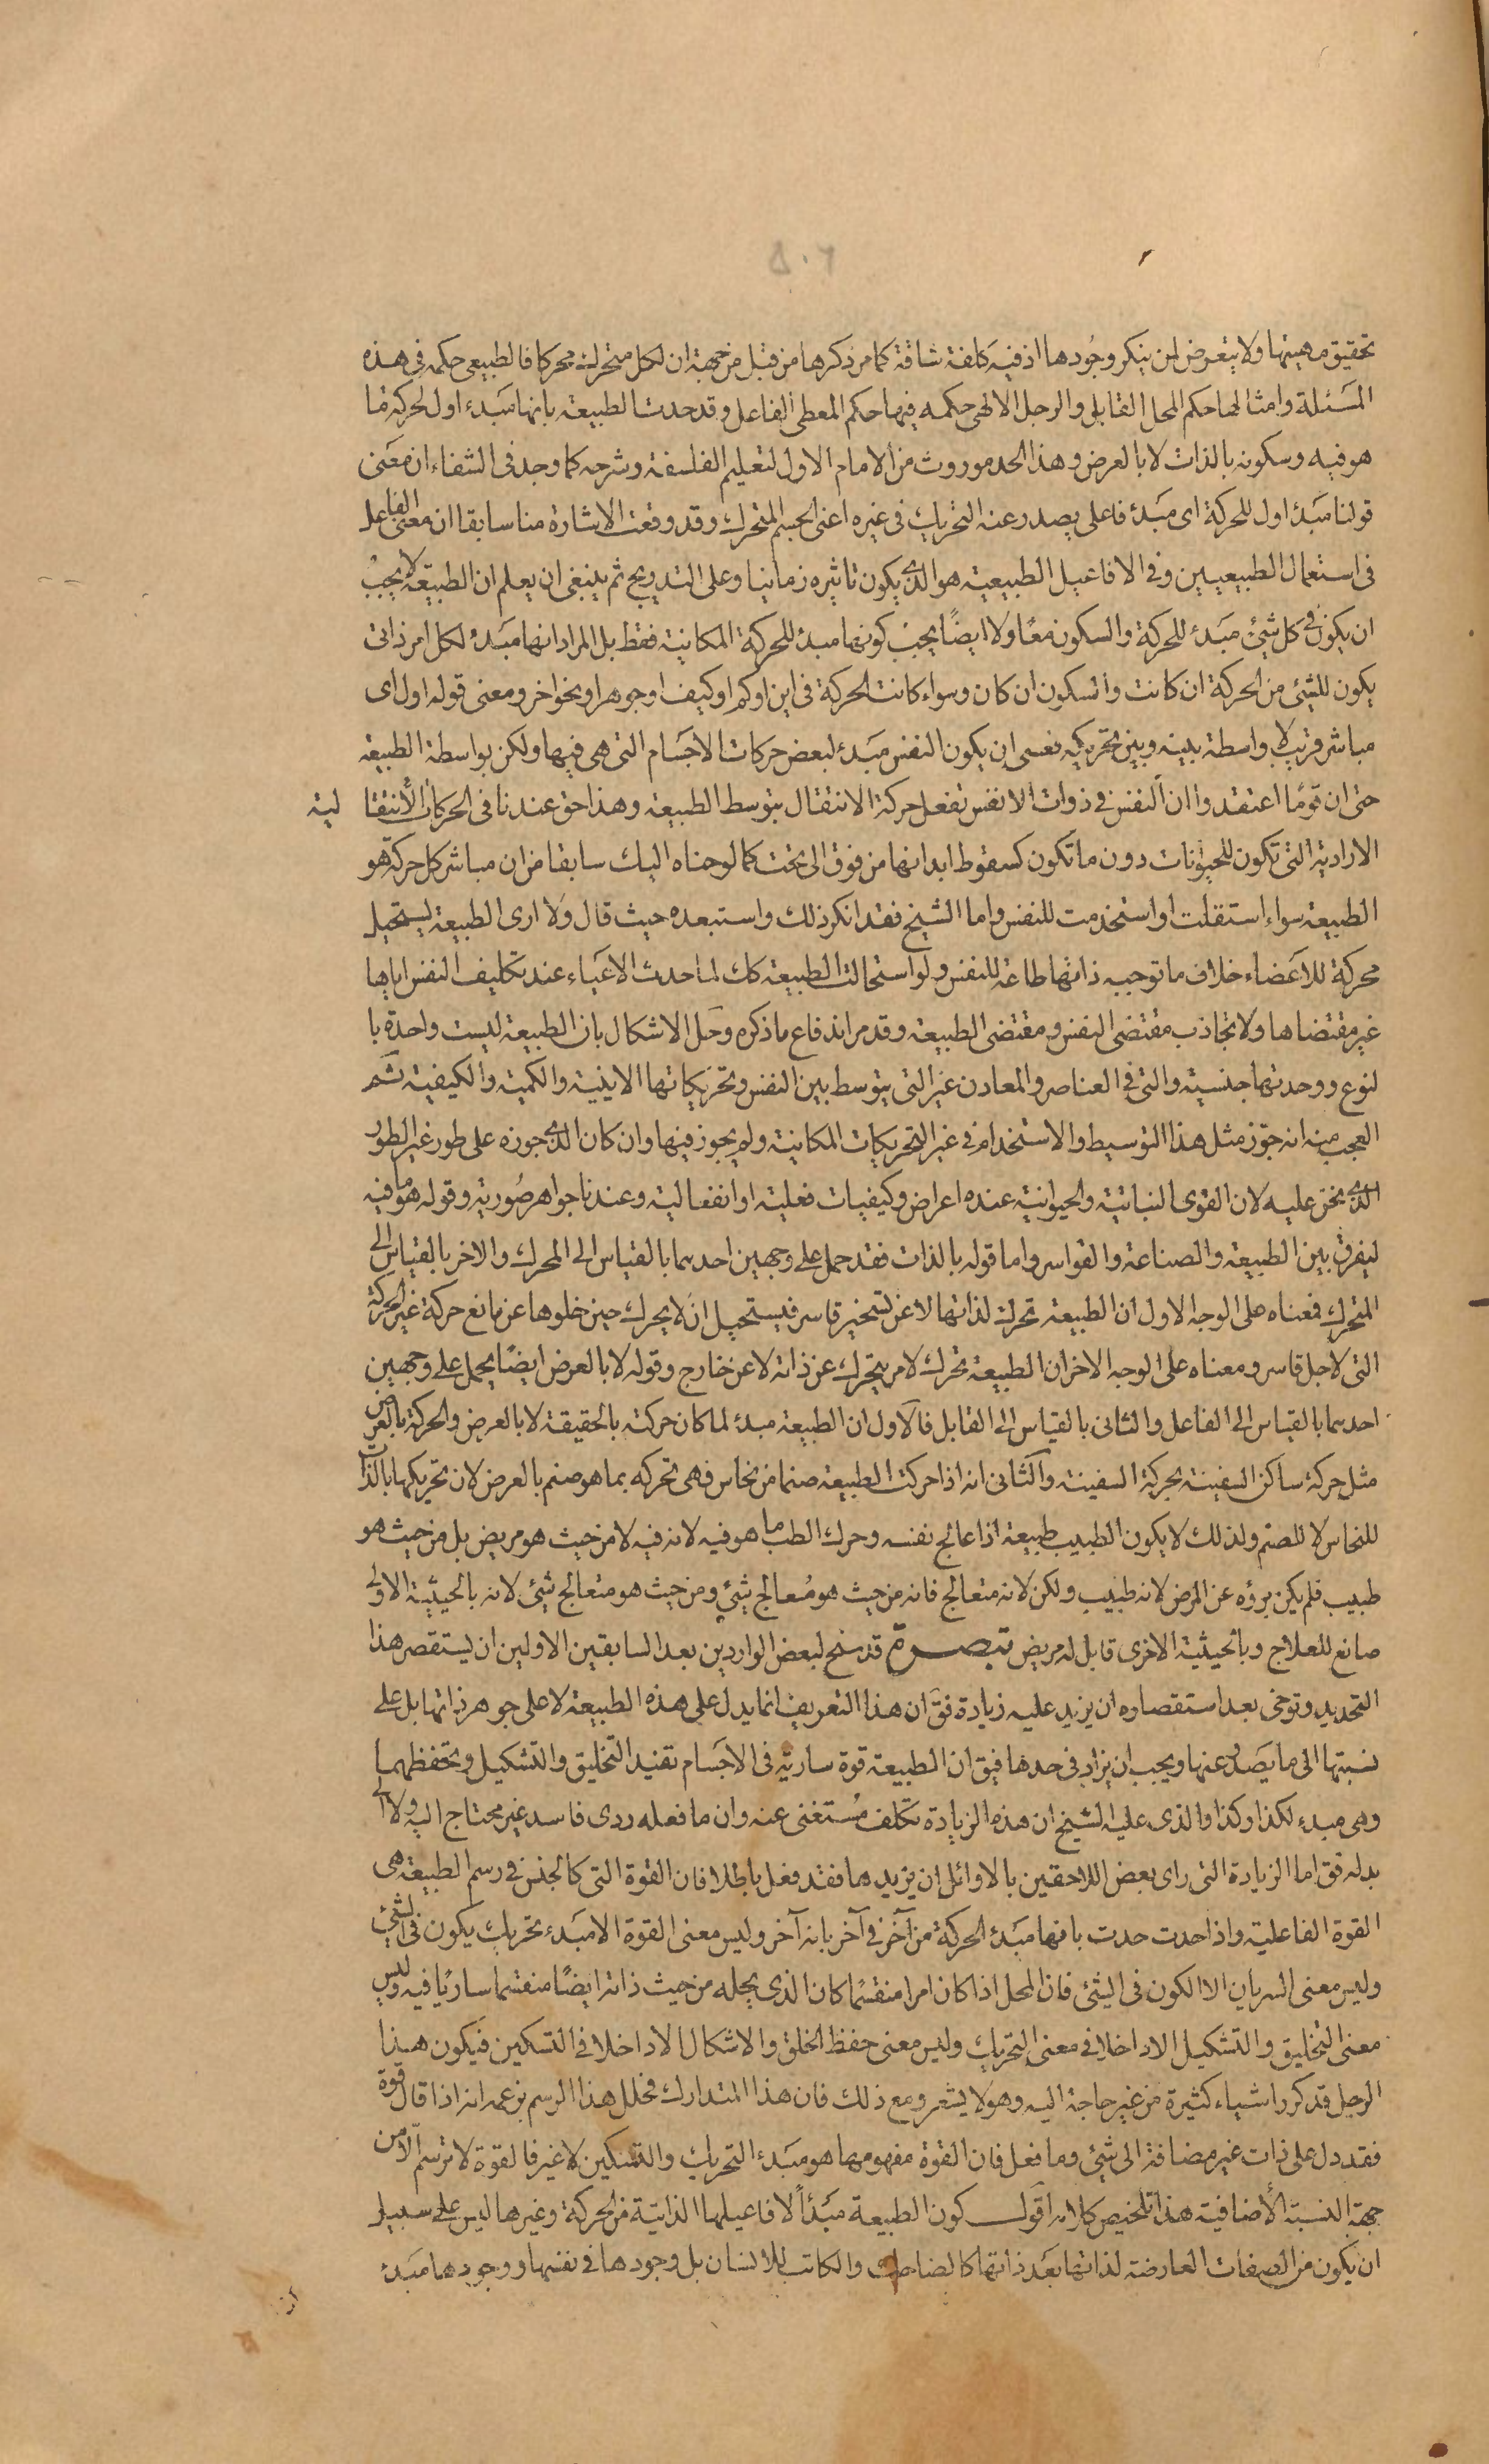 ٥٠٦
تحقيق مهيتها ولا يتعرض لمن ينكر وجودها اذ فيه كلفة شاقة كما مر ذكرها من قبل من جهة ان لكل متحرك محركا فالطبيعى حكمه فى هذه
المسئلة وامثالها حكم المحل القابل والرجل الالهى حكمه فيها حكم المعطى الفاعل وقد حدت الطبيعة بانها مبدء اول لحركة ما
هو فيه وسكونه بالذات لا بالعرض وهذا الحد موروث من الامام الاول لتعليم الفلسفة وشرحه كما وجد فى الشفاء ان معنى
قولنا مبدء اول للحركة اى مبدء فاعلى يصدر عنه التحريك فى غيره اعنى الجسم المتحرك وقد وقعت الاشارة منا سابقا ان معنى الفاعل
فى استعمال الطبيعيين وفى الافاعيل الطبيعية هو الذى يكون تاثيره زمانيا وعلى التدريج ثم ينبغى ان يعلم ان الطبيعة لا يجب
ان يكون فى كل شئ مبدء للحركة والسكون معًا ولا ايضًا يجب كونها مبدء للحركة المكانية فقط بل المراد انها مبدء لكل امر ذاتى
يكون للشئ من الحركة ان كانت والسكون ان كان وسواء كانت الحركة فى اين او كم او كيف او جوهر او نحو اخر ومعنى قوله اول اى
مباشر قريب لا واسطة بينه وبين تحريكه فعسى ان يكون النفس مبدء لبعض حركات الاجسام التى هى فيها ولكن بواسطة الطبيعة
حتى ان قومًا اعتقدوا ان النفس فى ذوات الانفس تفعل حركة الانتقال بتوسط الطبيعة وهذا حق عندنا فى الحركات الأنتقا لية
الارادية التى تكون للحيوانات دون ما تكون كسقوط ابدانها من فوق الى تحت كما لوحناه اليك سابقا من ان مباشر كل حركة هو
الطبيعة سواء استقلت او استخدمت للنفس واما الشيخ فقد انكر ذلك واستبعده حيث قال ولا ارى الطبيعة يستحيل
محركة للاعضاء خلاف ما توجبه ذاتها طاعة للنفس ولو استحالت الطبيعة كك لما حدث الاعياء عند تكليف النفس اياها
غير مقتضاها ولا تجاذب مقتضى النفس ومقتضى الطبيعة وقد مر اندفاع ما ذكره وحل الاشكال بان الطبيعة ليست واحدة با
لنوع ووحدتها جنسية والتى فى العناصر والمعادن غير التى يتوسط بين النفس وتحريكاتها الاينية والكمية والكيفية ثم
العجب منه انه جوّز مثل هذا التوسيط والاستخدام فى غير التحريكات المكانية ولم يجوز فيها وان كان الذى جوزه على طور غير الطور
الذى نحن عليه لان القوى النباتية والحيوانية عنده اعراض وكيفيات فعلية او انفعالية وعندنا جواهر صورية وقوله ما هو فيه
ليفرق بين الطبيعة والصناعة والقواسر واما قوله بالذات فقد حمل على وجهين احدهما بالقياس الى المحرك والاخر بالقياس الى
المتحرك فمعناه على الوجه الاول ان الطبيعة تحرك لذاتها لا عن تسخير قاسر فيستحيل ان لا يحرك حين خلوها عن مانع حركة غير الحركة
التى لاجل قاسر ومعناه على الوجه الاخر ان الطبيعة تحرك لامر يتحرك عن ذاته لا عن خارج وقوله لا بالعرض ايضًا يحمل على وجهين
احدهما بالقياس الى الفاعل والثانى بالقياس الى القابل فالاول ان الطبيعة مبدء لما كان حركته بالحقيقة لا بالعرض والحركة بالعرض
مثل حركة ساكن السفينة بحركة السفينة والثانى انه اذا حركت الطبيعة صنما من نحاس فهى تحركه بما هو صنم بالعرض لان تحريكها بالذات
للنحاس لا للصنم ولذلك لا يكون الطبيب طبيعة اذا عالج نفسه وحرك الطب ما هو فيه لانه فيه لا من حيث هو مريض بل من حيث هو
طبيب فلم يكن برؤه عن المرض لانه طبيب ولكن لانه متعالج فانه من حيث هو مُعالج شئ ومن حيث هو متعالج شئ لانه بالحيثية الاولى
صانع للعلاج وبالحيثية الاخرى قابل له مريض تبصرة قد سنح لبعض الواردين بعد السابقين الاولين ان يستقصر هذا
التحديد وتوخى بعد استقصاره ان يزيد عليه زيادة فق ان هذا التعريف انما يدل على هذه الطبيعة لا على جوهر ذاتها بل على
نسبتها الى ما يصدر عنها ويجب ان يزاد فى حدها فيق ان الطبيعة قوة سارية فى الاجسام تفيد التخليق والتشكيل وتحفظهما
وهى مبدء لكذا وكذا والذى عليه الشيخ ان هذه الزيادة تكلف مُستغنى عنه وان ما فعله ردى فاسد غير محتاج اليه ولا الى
بدله فق اما الزيادة التى راى بعض اللاحقين بالاوائل ان يزيدها فقد فعل باطلا فان القوة التى كالجنس فى رسم الطبيعة هى
القوة الفاعلية واذا حدت حدت بانها مبدء الحركة من آخر فى آخر بانه آخر وليس معنى القوة الا مبدء تحريك يكون فى الشئ
وليس معنى السريان الا الكون فى الشئ فان المحل اذا كان امرا منقسمًا كان الذى يحله من حيث ذاته ايضًا منقسما ساريًا فيه وليس
معنى التخليق والتشكيل الا داخلا فى معنى التحريك وليس معنى حفظ الخلق والاشكال الا داخلا فى التسكين فيكون هذا
الرجل قد كرر اشياء كثيرة من غير حاجة اليه وهو لا يشعر ومع ذلك فان هذا المتدارك لخلل هذا الرسم بزعمه انه اذا قال قوة
فقد دل على ذات غير مضافة الى شئ وما فعل فان القوة مفهومها هو مبدء التحريك والتسكين لا غير فالقوة لا ترسم الا من
جهة النسبة الأضافية هذا تلخيص كلامه اقول كون الطبيعة مبدأً لافاعيلها الذاتية من الحركة وغيرها ليس على سبيل
ان يكون من الصفات العارضة لذاتها بعد ذاتها كالضاحك والكاتب للانسان بل وجودها فى نفسها ووجودها مبدء